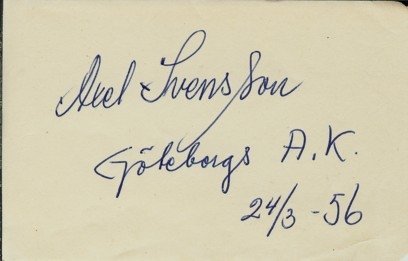 Axel Svensson
Göteborgs A.K.
24/3 - 56